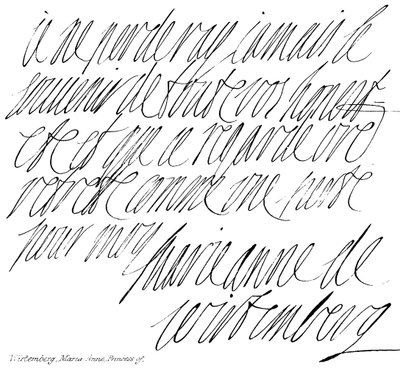 ie ne perderay iamais le
souvenir de toute vos honest
etes et que ie regarde vre
retrete comme une perte
pour moy
marie anne de
wirtemberg
Wirtemberg, Maria Anne, Princess of.